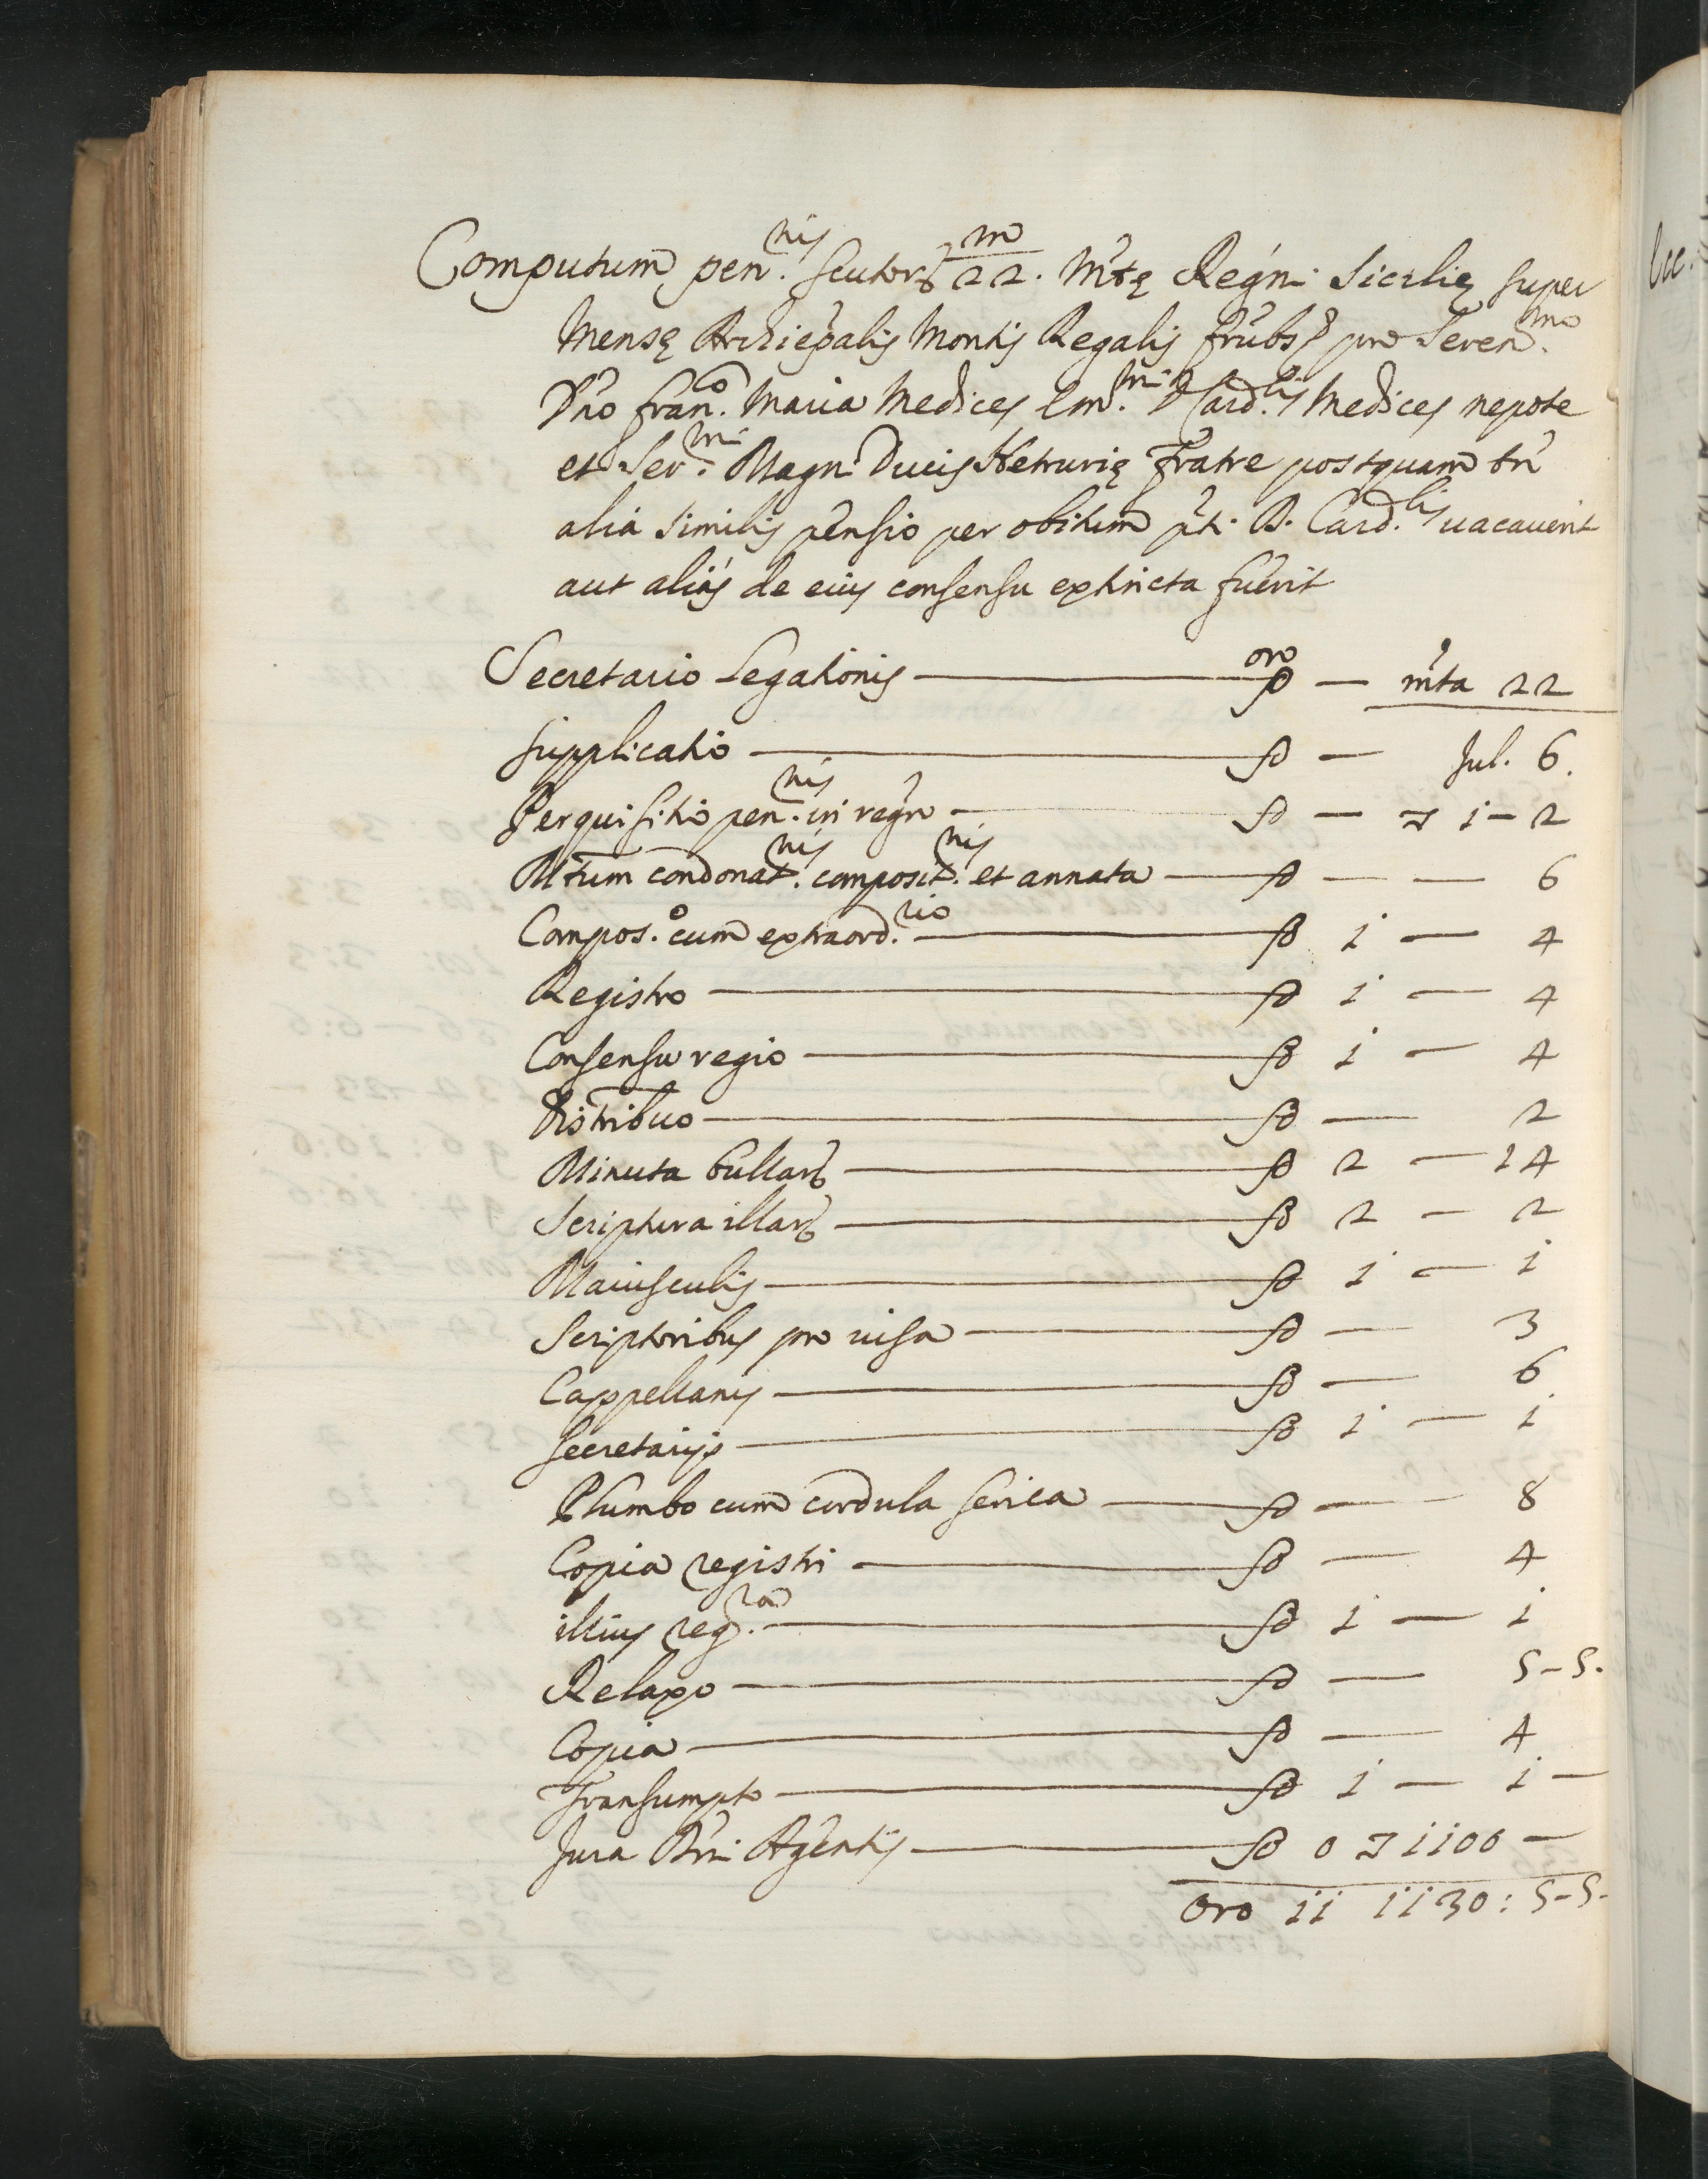 Computum pen.nis scutorū 22.m Mtę Regni Sicilię super
Mensę Archiepalis Montis Regalis frubs pro Seren.mo
Dno Fran.co Maria Medices Em.mi D. Card.lis Medices nepote
et Ser.mi Magni Ducis Hetrurię fratre postquam tn
alia similis pensio per obitum pti. D. Card.lis uacauerit
aut aliàs de eius consensu extincta fuerit
Secretario Legationis — oro — mta 22
supplicatio — Jul. 6.
Perquisitio pen.nis in regro — ▽ i - 2
condonat.nis composit.nis et annata — 6
Compos.o cum extraord.rio — i — 4
Registro — i — 4
Consensu regio — i — 4
Distribuo — 2
Minuta bullarū — 2 — 14
Scriptura illarū — 2 — 2
Maiusculis — i — i
Scriptoribus pro uisa — 3
Cappellanis — 6
Secretarijs — i — i
Plumbo cum cordula serica — 8
Copia registri — 4
illius reg.ra — i — i
Relaxo — 5-5.
Copia — 4
Transumpto — i — i —
Jura Dni Agentis — 0 ▽ 1100 —
Oro ii ii30: 5-5-